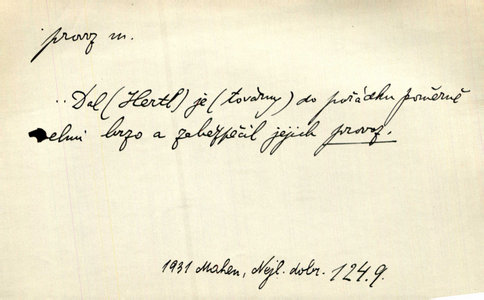 provoz m.
..Dal (Hertl) je (továrny) do pořádku poměrně
velmi brzo a zabezpečil jejich provoz.
1931 Mahen, Nejl. dobr. 124.9.